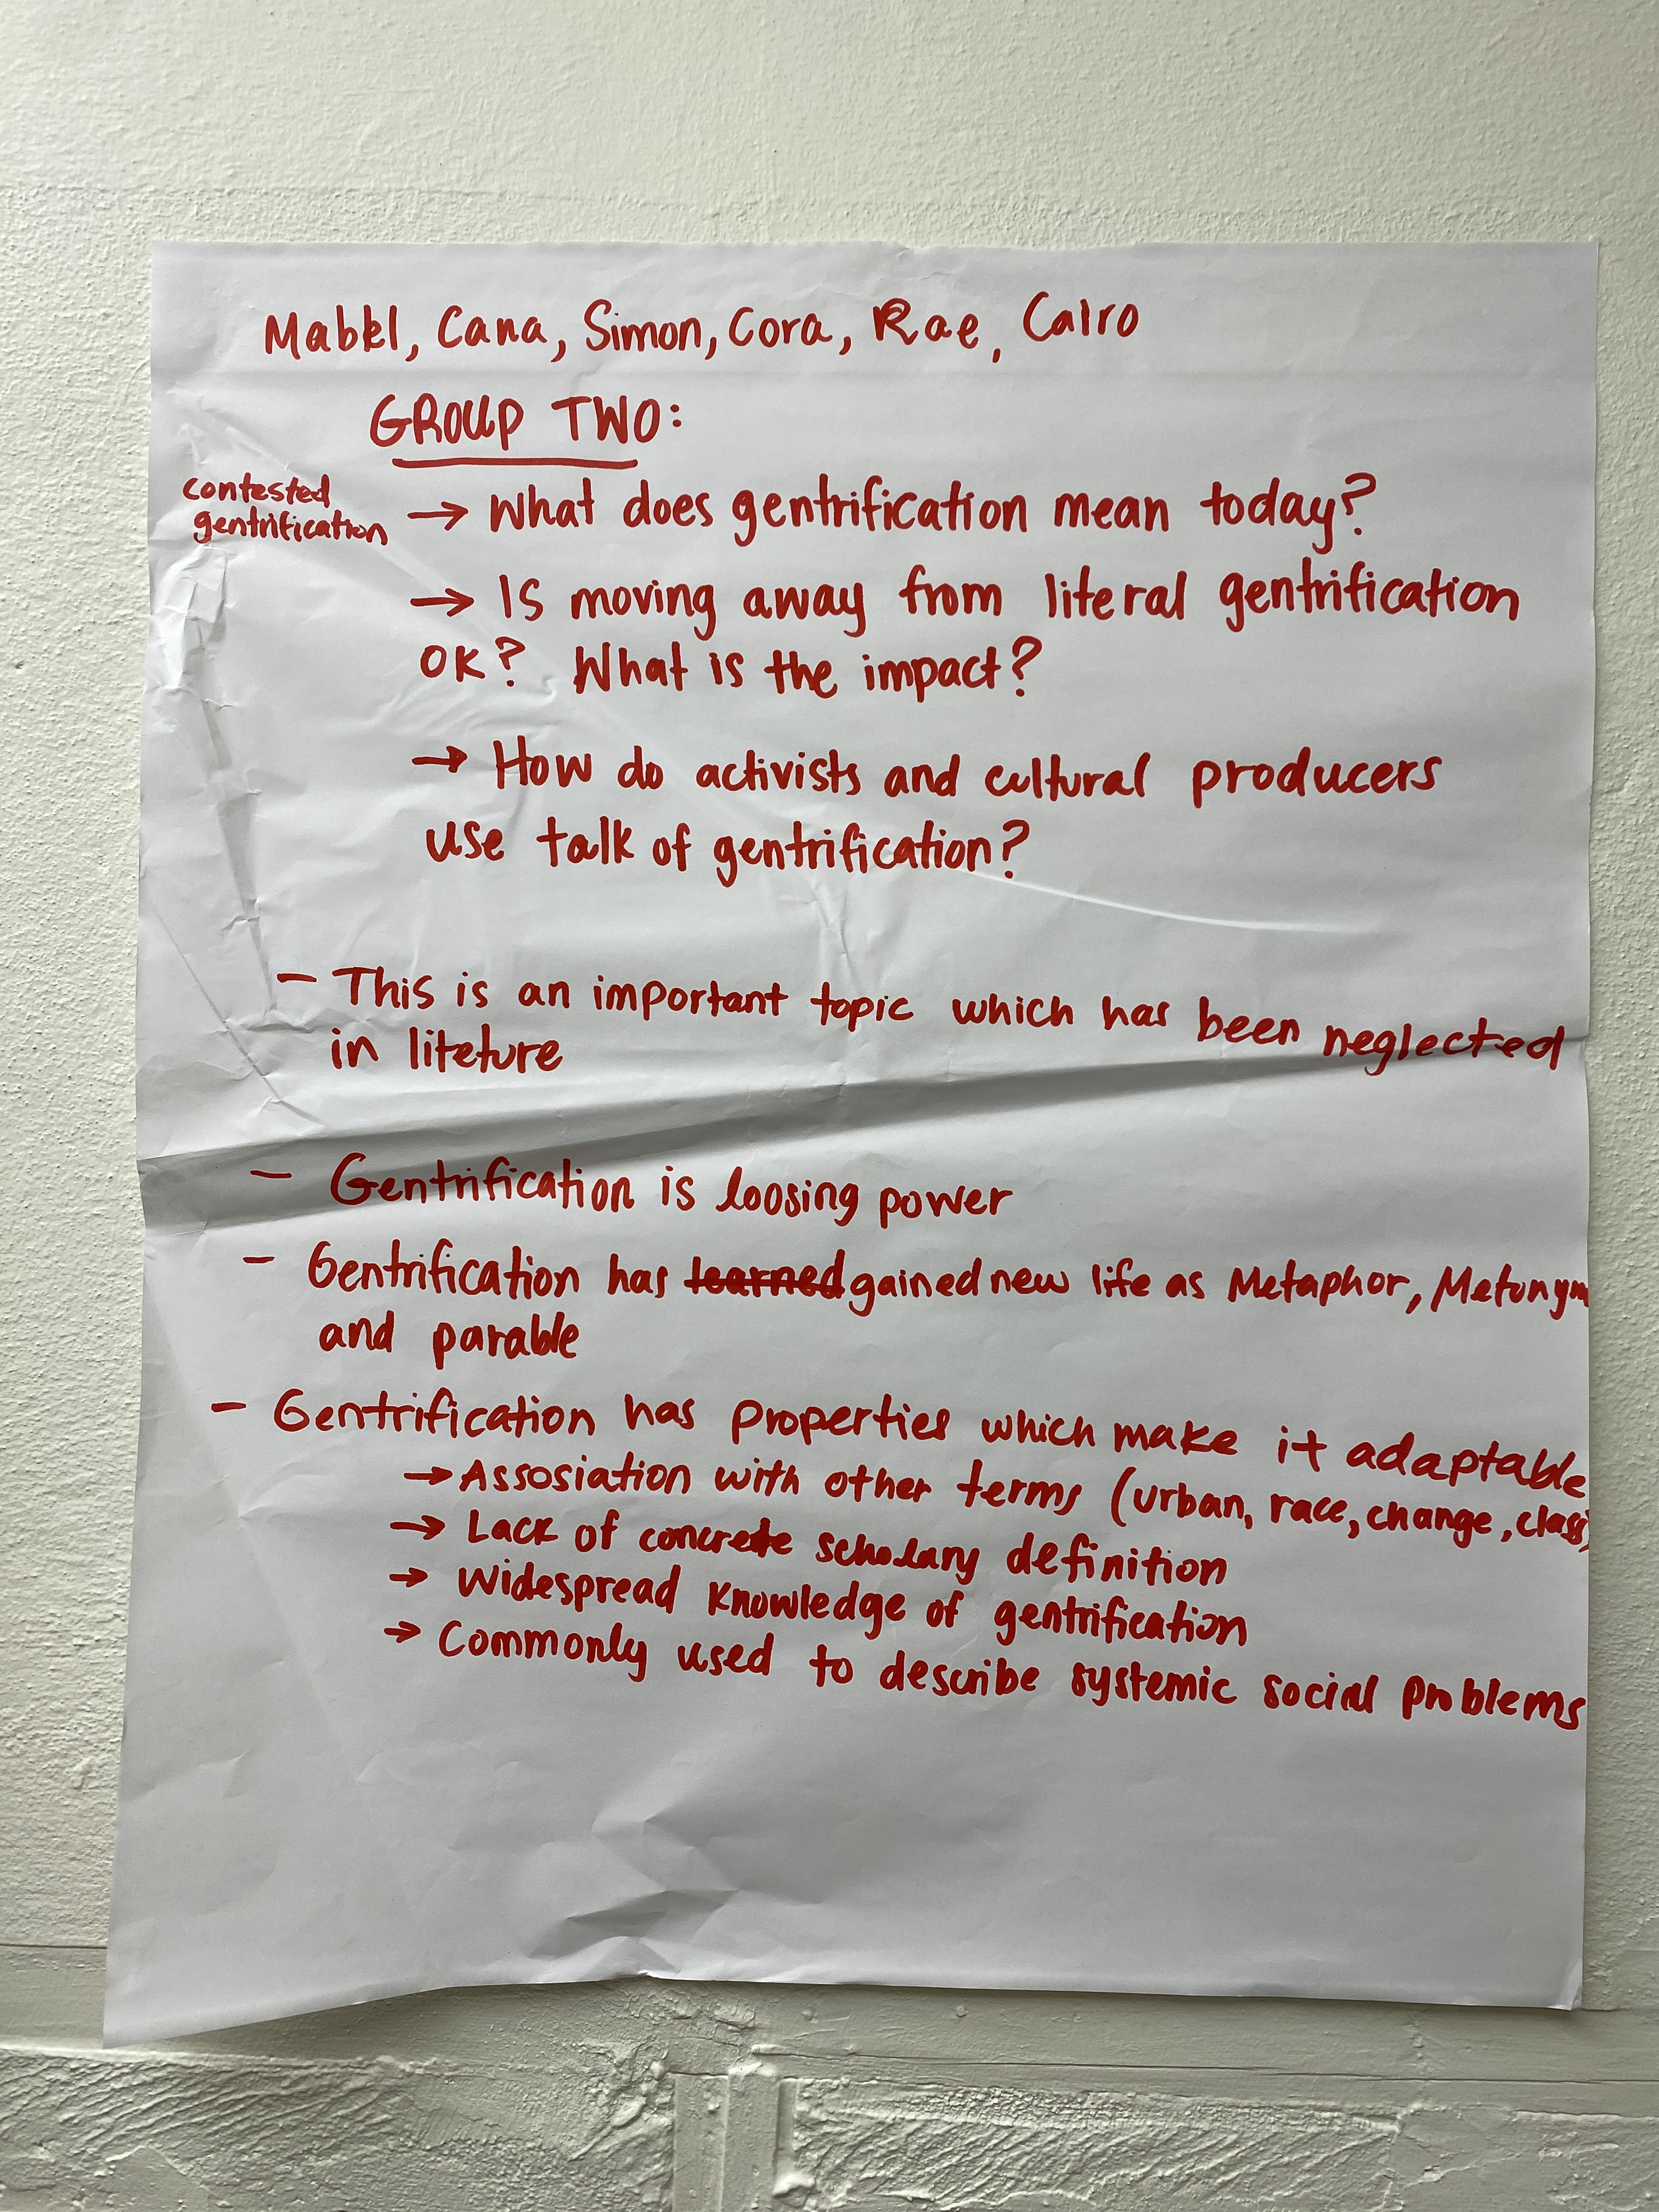 Mabel, Cana, Simon, Cora, Rae, Cairo
GROUP TWO:
contested
gentrification → What does gentrification mean today?
→ Is moving away from literal gentrification
OK? What is the impact?
→ How do activists and cultural producers
use talk of gentrification?
- This is an important topic which has been neglected
in liteture
- Gentrification is loosing power
- Gentrification has learned gained new life as Metaphor, Metonym
and parable
- Gentrification has properties which make it adaptable
→ Assosiation with other terms (urban, race, change, class)
→ Lack of concrete scholary definition
→ Widespread knowledge of gentrification
→ Commonly used to describe systemic social problems